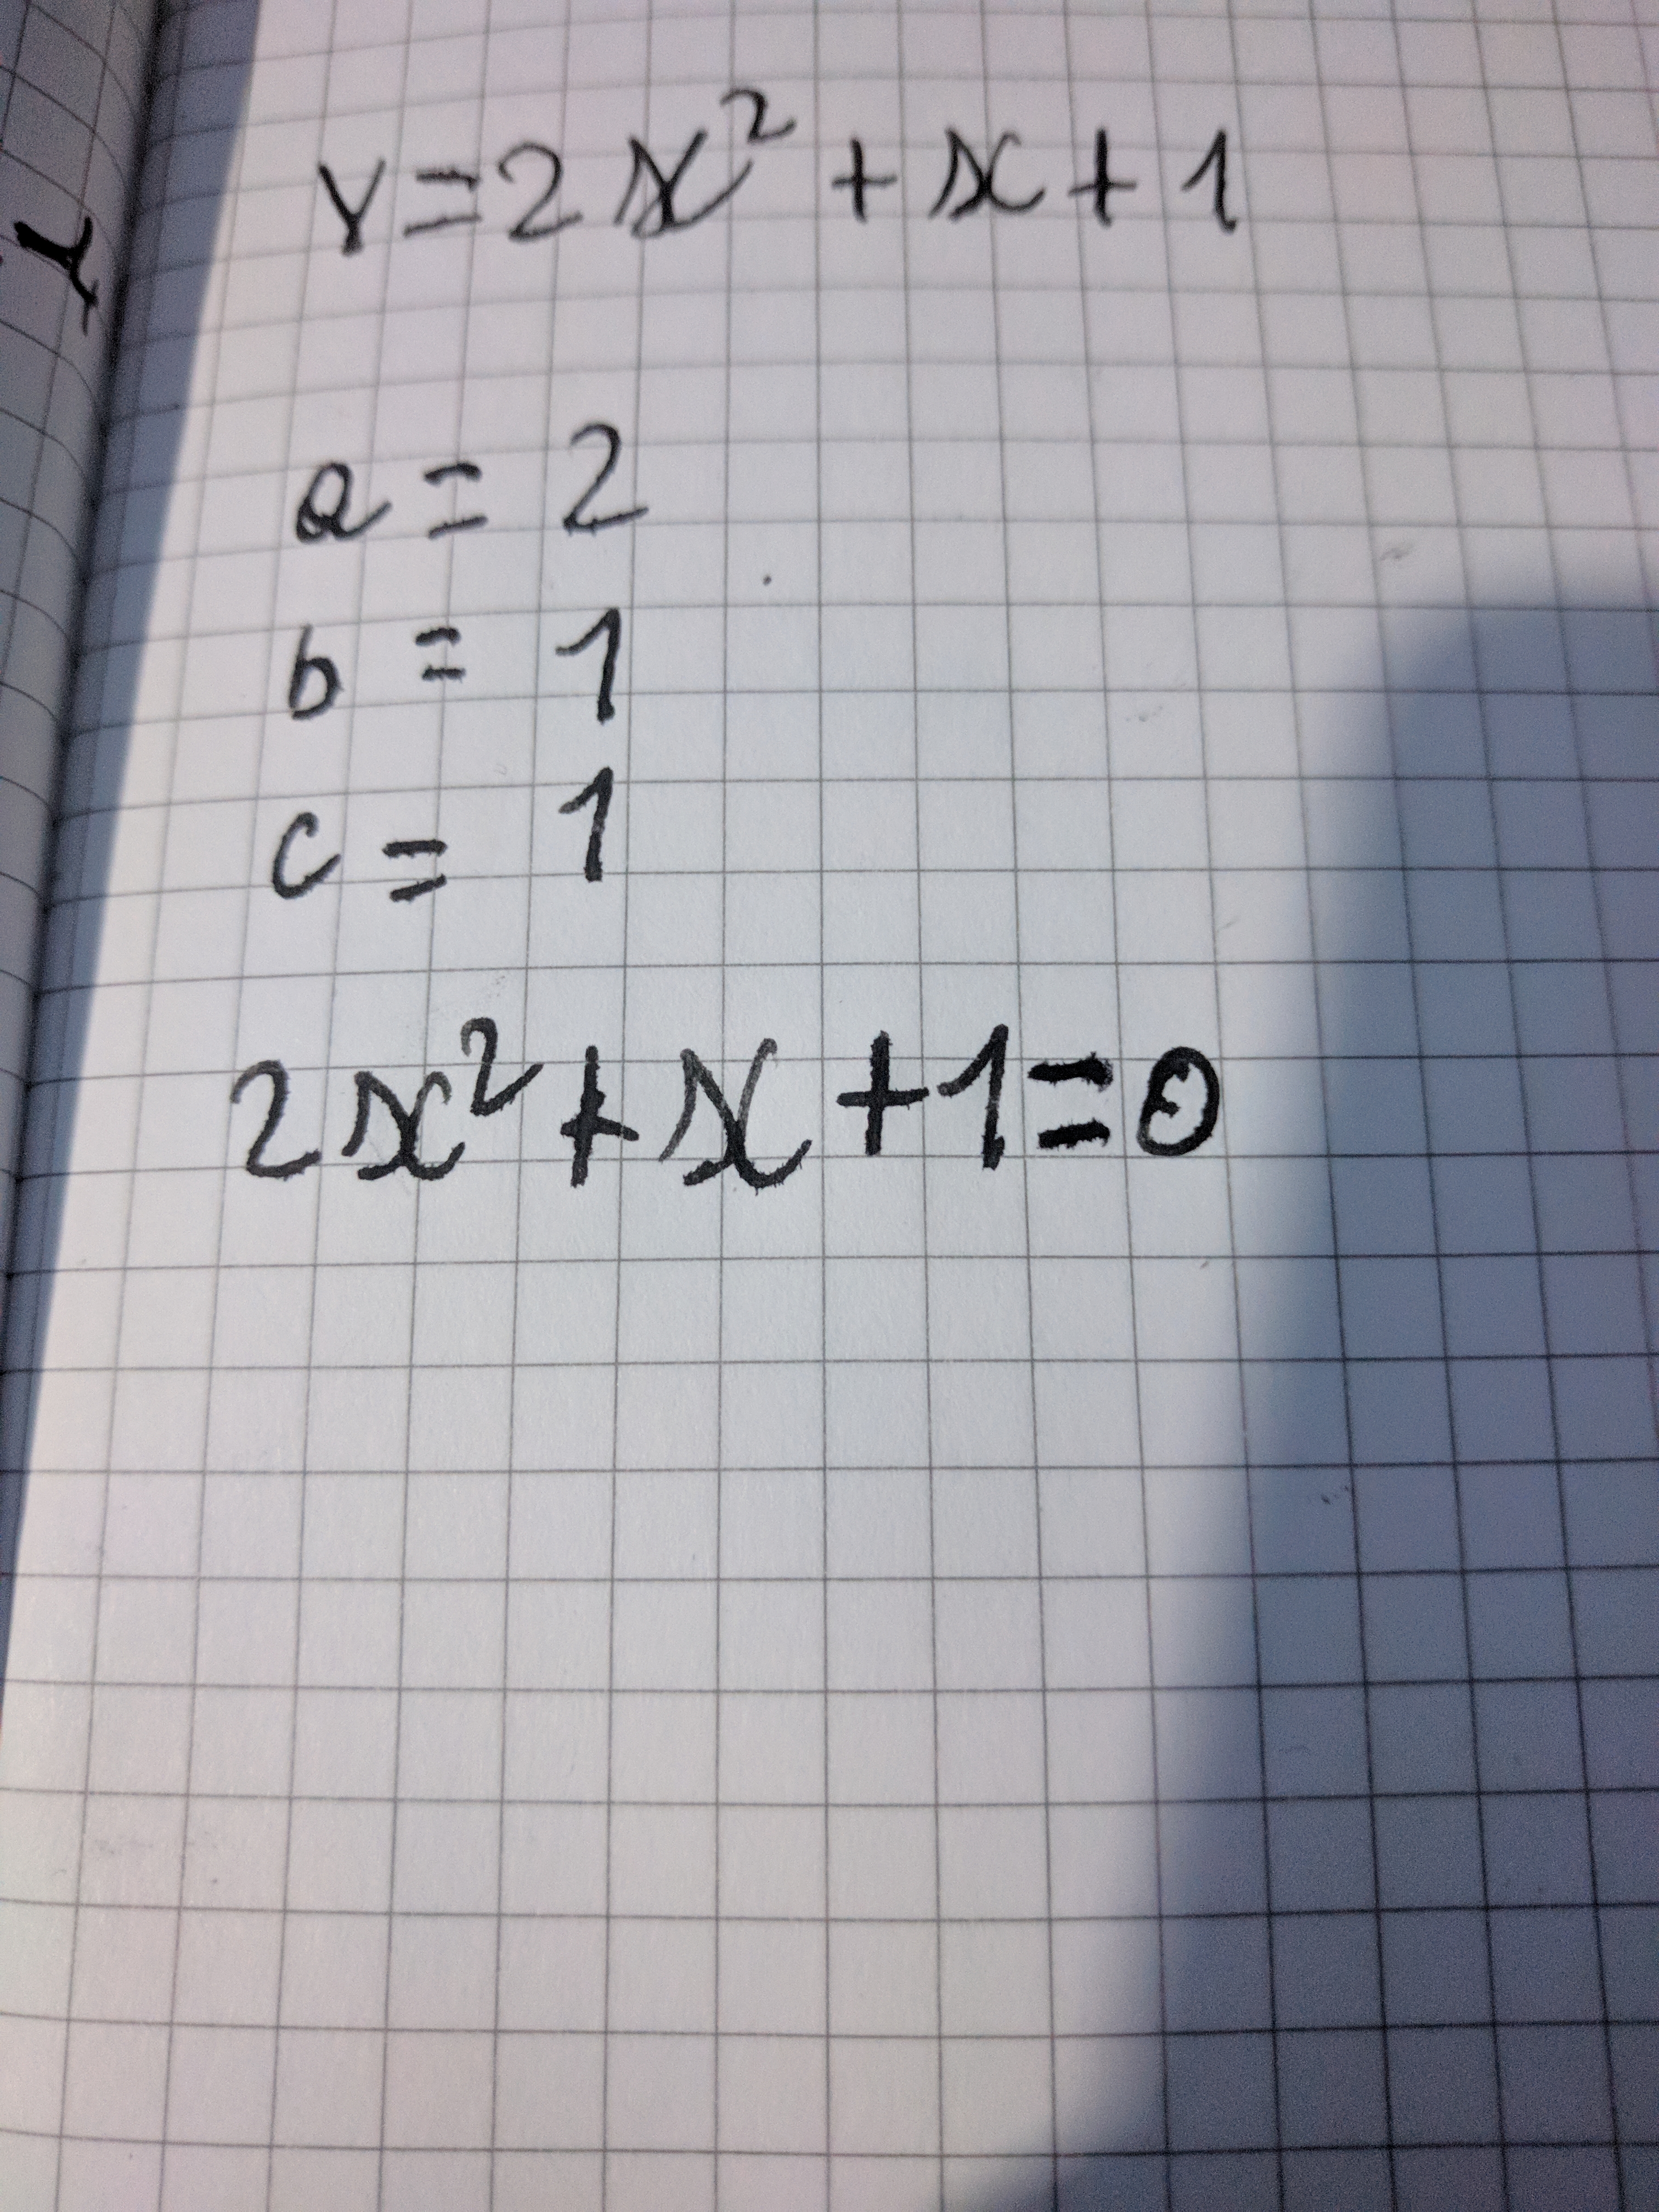 y=2x²+x+1
a=2
b=1
c=1
2x²+x+1=0